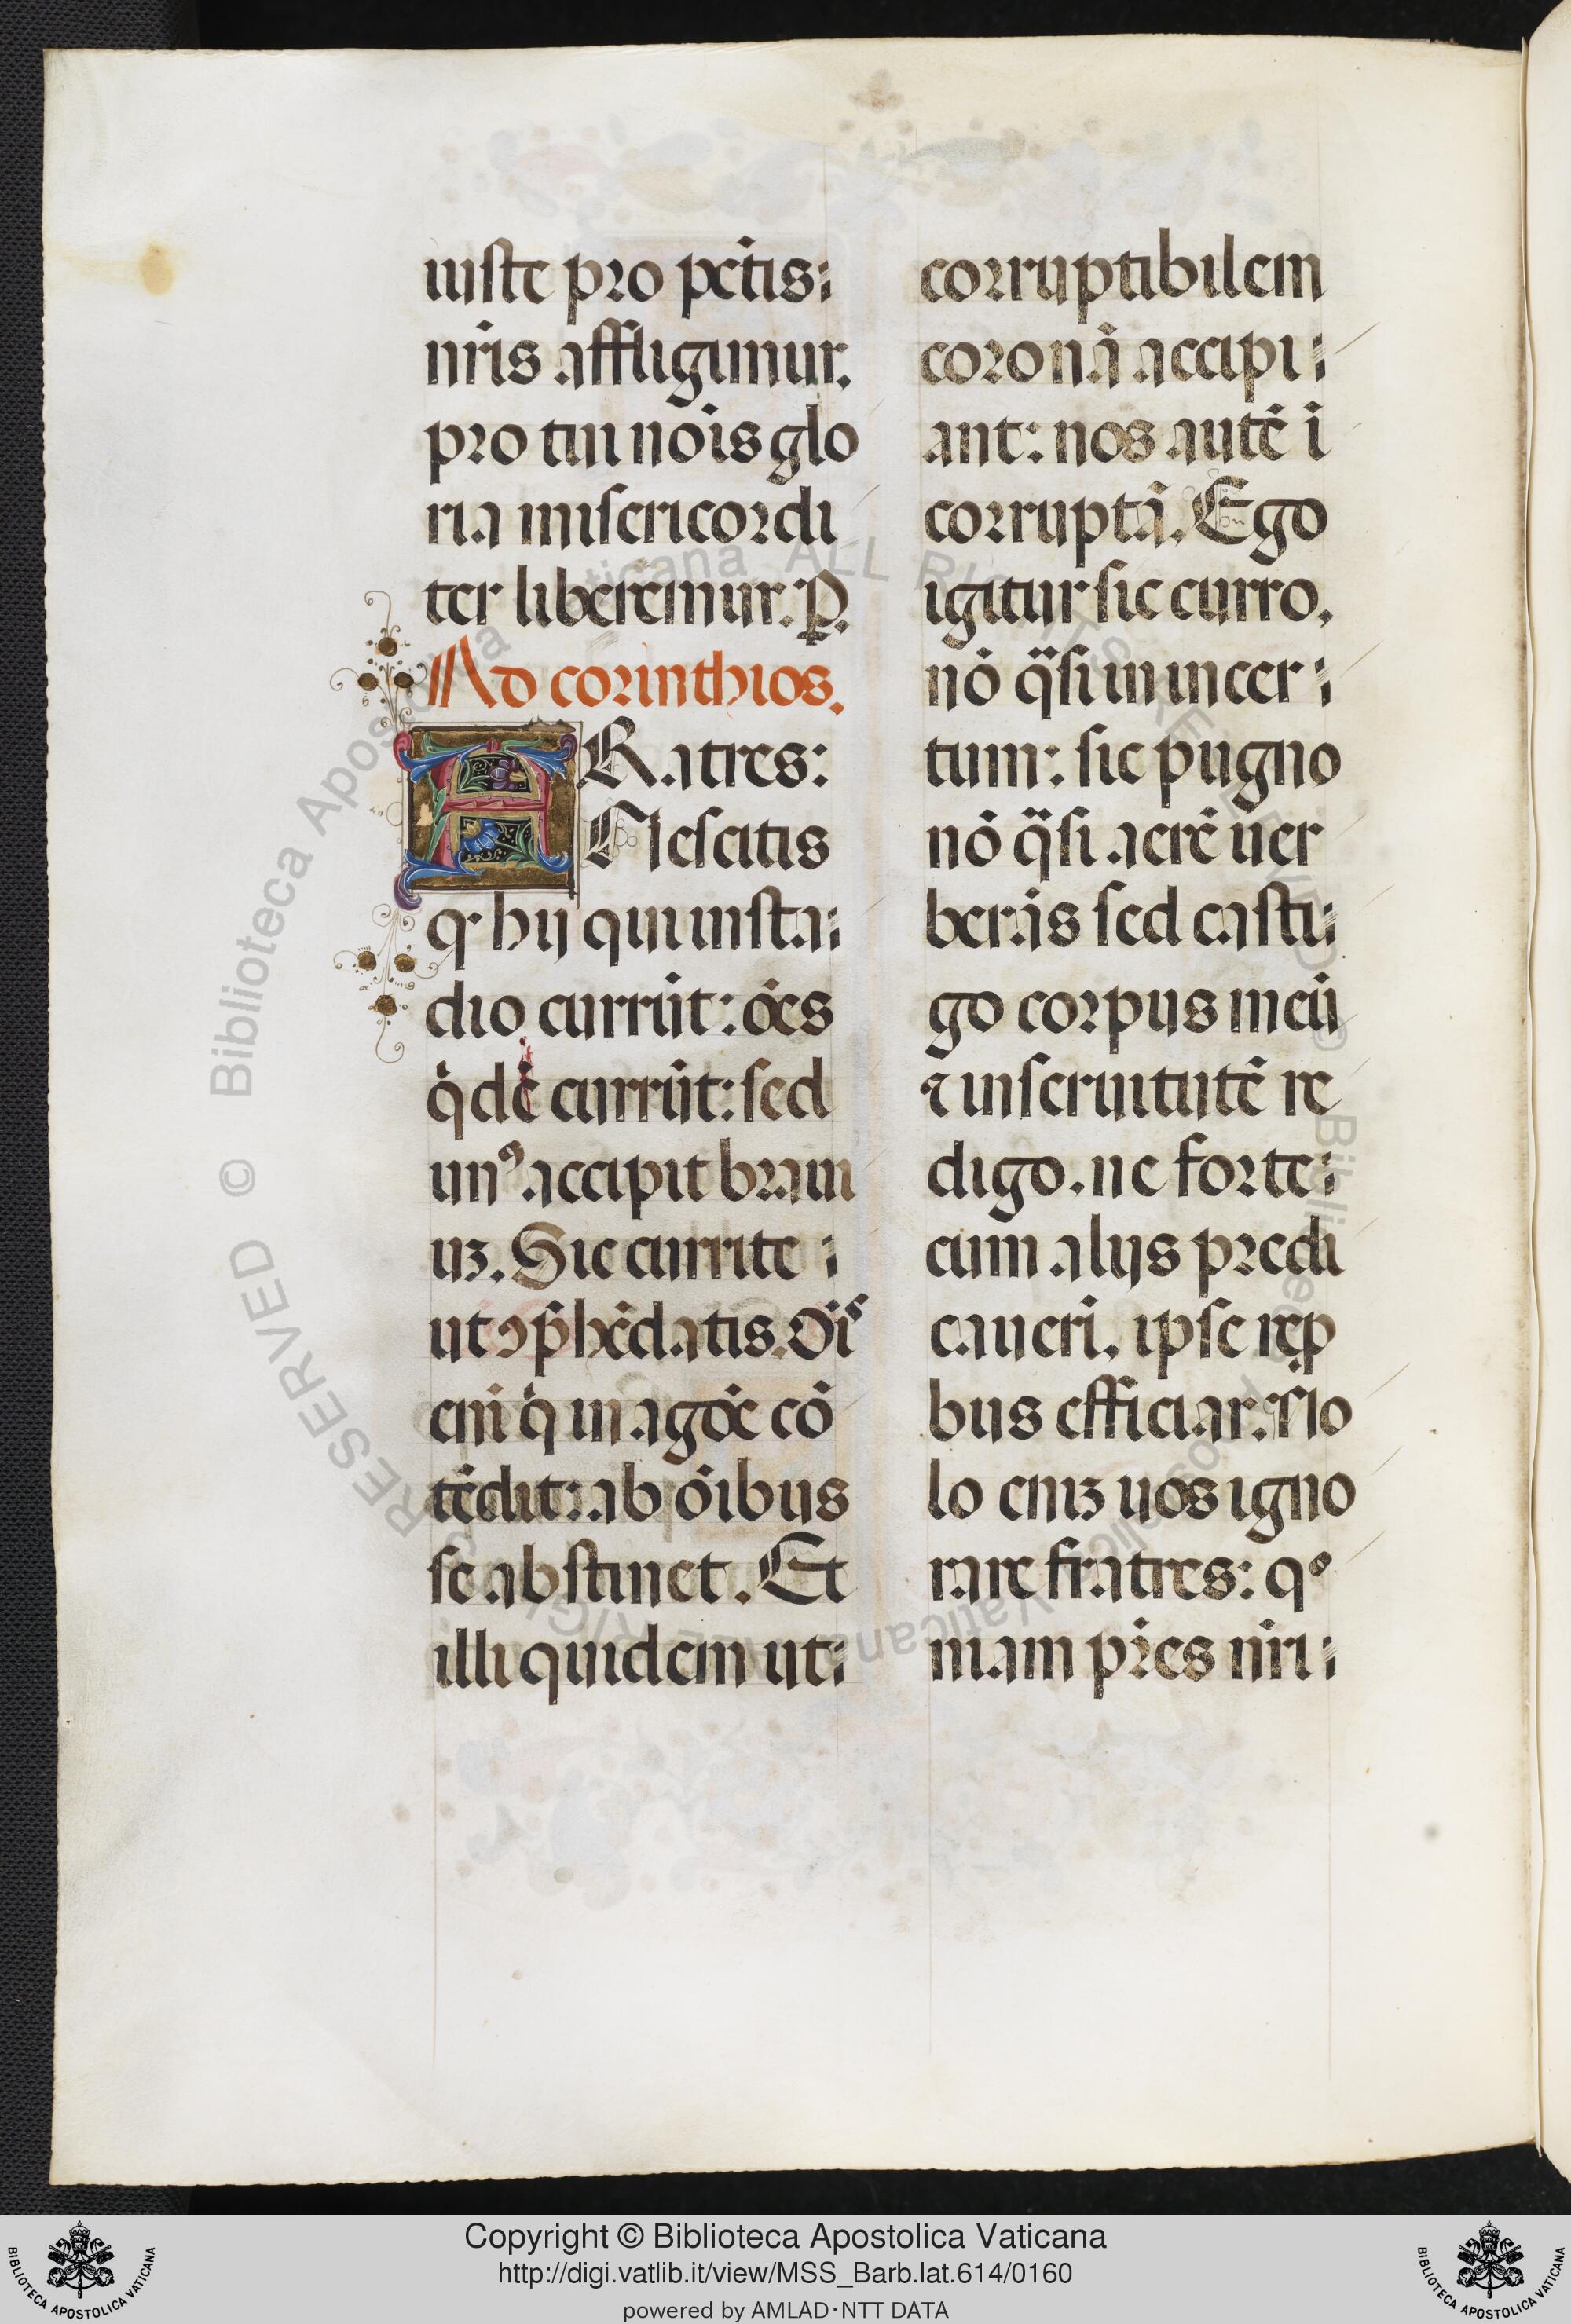 iuste pro pctis:
nr̃is affligimur.
pro tui nõis glo
ria misericordi
ter liberemur. P.
Ad corinthios.
FRatres:
Nescitis
q hij qui in sta:
dio currũt: ões
q̃dẽ currũt: sed
unꝰ accipit braui
uʒ. Sic currite :
ut ↄp̃hẽdatis. Oĩs
eni q̃ in agõe cõ
tẽdit: ab õibus
se abstinet. Et
illi quidem ut:
corruptibilem
coronã accipi:
ant: nos autẽ ĩ
corruptã. Ego
igitur sic curro.
nõ q̃si in incer:
tum: sic pugno
nõ q̃si aerẽ uer
berãs sed casti:
go corpus meũ
⁊ in seruitutẽ re
digo. ne forte:
cum alijs predi
caueri. ipse rep
bus efficiar. No
lo eniʒ uos igno
rare fratres: qͦ
niam pr̃es nr̃i:
Copyright © Biblioteca Apostolica Vaticana
http://digi.vatlib.it/view/MSS_Barb.lat.614/0160
powered by AMLAD·NTT DATA
BIBLIOTECA APOSTOLICA VATICANA
BIBLIOTECA APOSTOLICA VATICANA